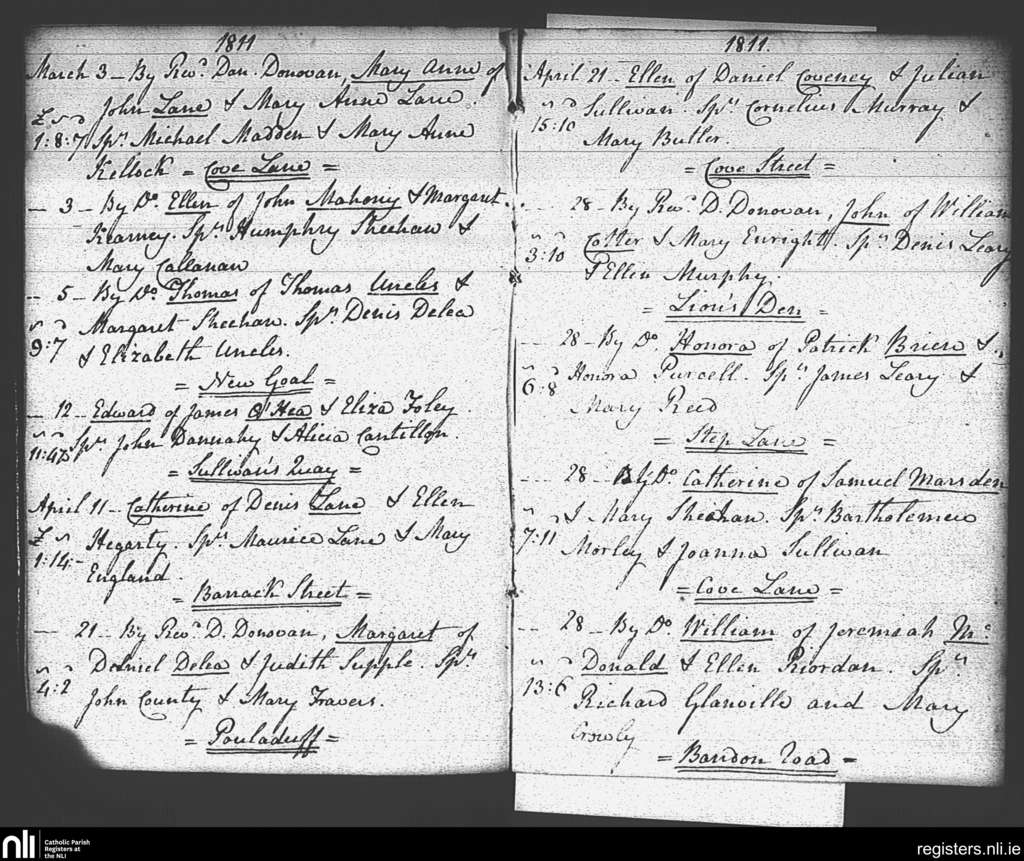 1811
March 3 - By Revd. Dan. Donovan, Mary Anne of
John Lane & Mary Anne Lane.
1:8:7 Sprs. Michael Madden & Mary Anne
Kellock = Cove Lane =
- 3 - By Do. Ellen of John Mahony & Margaret
Kearney. Sprs. Humphry Sheehan &
Mary Callanan
- 5 - By Do. Thomas of Thomas Uncles &
Margaret Sheehan. Sprs. Denis Delea
9:7 & Elizabeth Uncles.
= New Goal =
- 12 - Edward of James O'Hea & Eliza Foley.
Sprs. John Dannahy & Alicia Cantillon.
= Sullivan's Quay =
April 11 - Catherine of Denis Lane & Ellen
Hegarty. Sprs. Maurice Lane & Mary
1:14:-
England.
= Barrack Street =
- 21 - By Revd. D. Donovan, Margaret of
Daniel Delea & Judith Supple. Sprs.
4:2
John County & Mary Travers.
= Pouladuff =
1811.
April 21 - Ellen of Daniel Coveney & Julian
Sullivan. Sprs. Cornelius Murray &
15:10
Mary Butler.
= Cove Street =
28 - By Revd. D. Donovan, John of William
Cotter & Mary Enright. Sprs. Denis Leary
3:10
& Ellen Murphy.
= Lion's Den =
28 - By Do. Honora of Patrick Brien &
Honora Purcell. Sprs. James Leary &
6:8
Mary Reed
= Step Lane =
28 - By Do. Catherine of Samuel Marsden
& Mary Sheehan. Sprs. Bartholemew
7:11
Morley & Joanna Sullivan
= Cove Lane =
28 - By Do. William of Jeremiah Mc.
Donald & Ellen Riordan. Sprs.
13:6
Richard Glanville and Mary
Crowly
= Bandon road =
nli
Catholic Parish
Registers at
the NLI
registers.nli.ie